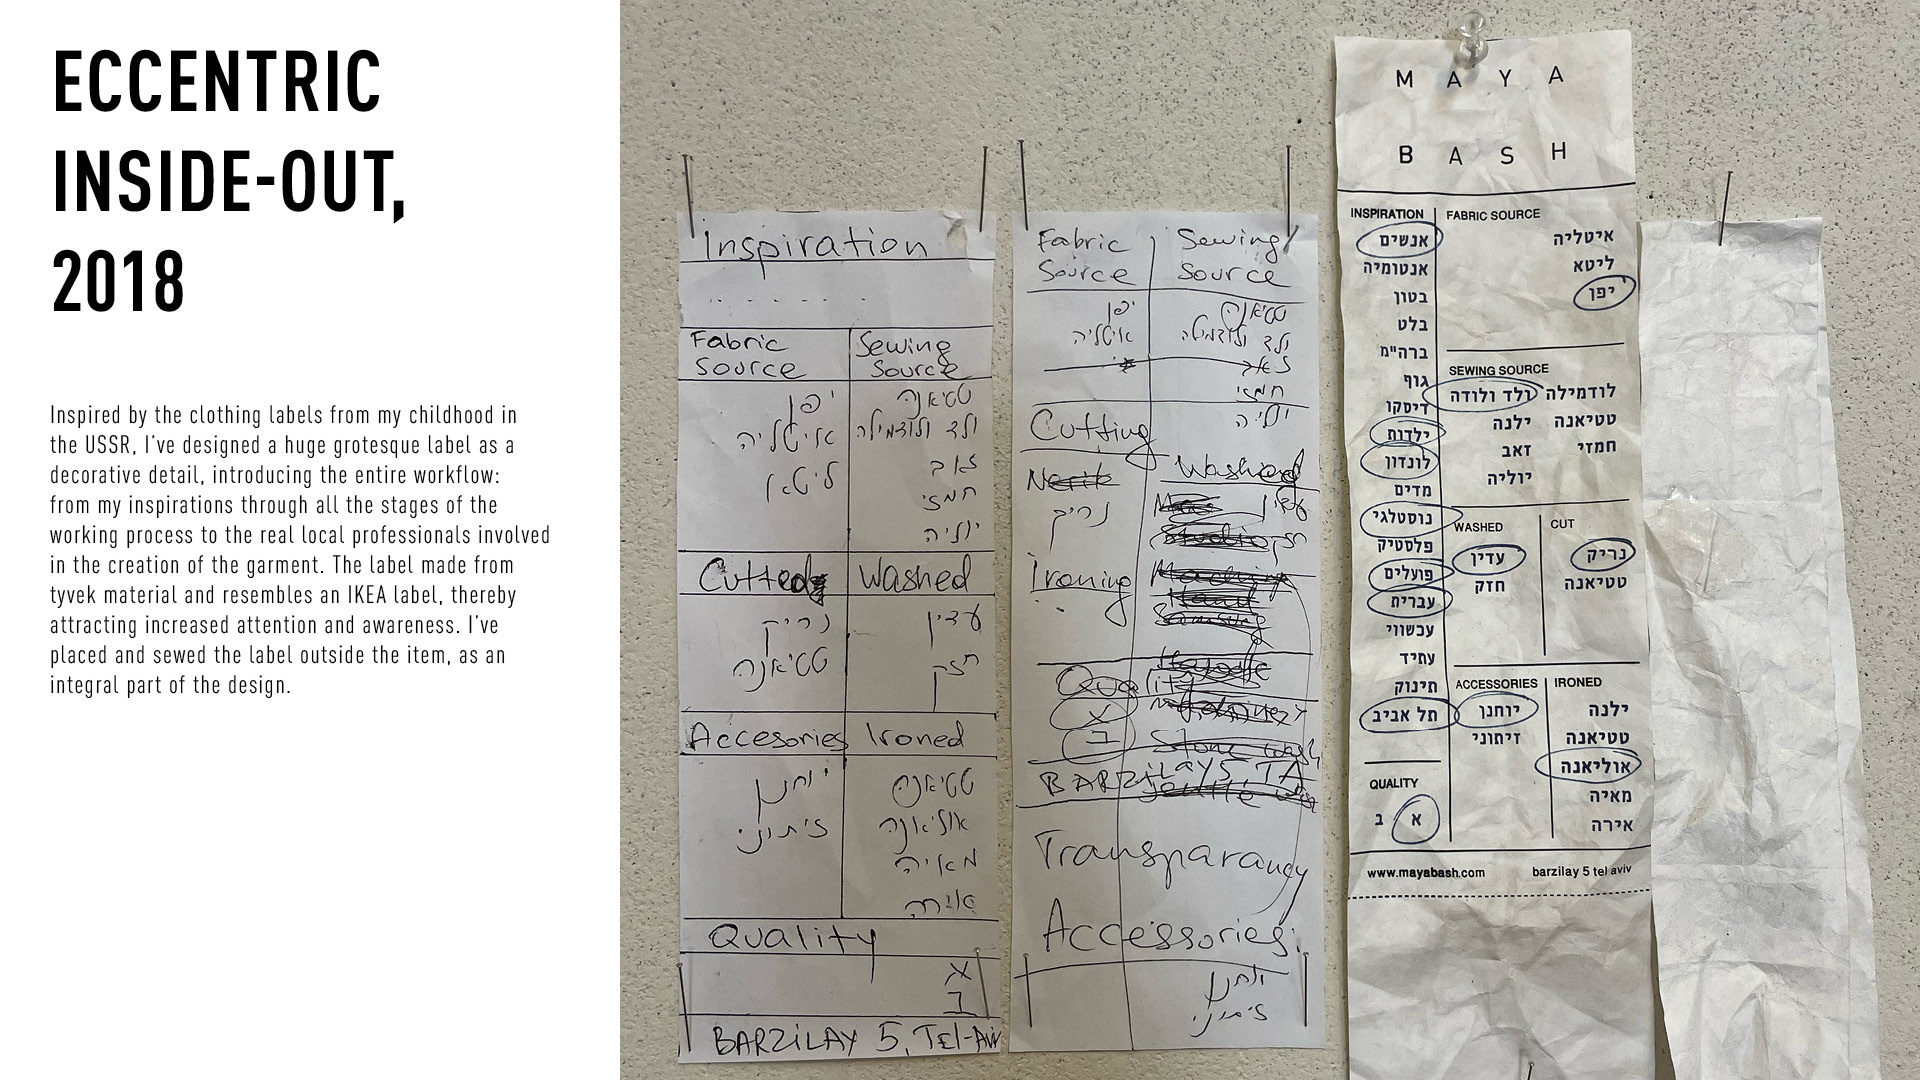 ECCENTRIC
INSIDE-OUT,
2018
Inspired by the clothing labels from my childhood in
the USSR, I've designed a huge grotesque label as a
decorative detail, introducing the entire workflow:
from my inspirations through all the stages of the
working process to the real local professionals involved
in the creation of the garment. The label made from
tyvek material and resembles an IKEA label, thereby
attracting increased attention and awareness. I've
placed and sewed the label outside the item, as an
integral part of the design.
Inspiration
Fabric
Source
Sewing
Source
יפן
איטליה
ליטא
טטיאנה
ולד ולודמילה
זאב
חמזי
יוליה
Cutted
Washed
נריק
טטיאנה
עדין
חזק
Accesories
Ironed
יוחנן
זיתוני
טטיאנה
אוליאנה
מאיה
אירה
Quality
א
ב
BARZILAY 5, Tel-Aviv
Fabric
Source
Sewing
Source
יפן
איטליה
טטיאנה
ולד ולודמילה
זאב
חמזי
יוליה
Cutting
Nerik
נריק
Washed
עדין
חזק
Studio
Ironing
Machine
Hand
Quality
א
ב
Stone wash
BARZILAY 5, TA
Transparancy
Accessories:
יוחנן
זיתוני
MAYA
BASH
INSPIRATION
אנשים
אנטומיה
בטון
בלט
ברה"מ
גוף
דיסקו
ילדות
לונדון
מדים
נוסטלגי
פלסטיק
פועלים
עברית
עכשווי
עתיד
תינוק
תל אביב
FABRIC SOURCE
איטליה
ליטא
יפן
SEWING SOURCE
לודמילה ולד ולודה
טטיאנה ילנה
חמזי זאב
יוליה
WASHED
עדין
חזק
CUT
נריק
טטיאנה
ACCESSORIES
יוחנן
זיתוני
IRONED
ילנה
טטיאנה
אוליאנה
מאיה
אירה
QUALITY
א ב
www.mayabash.com barzilay 5 tel aviv